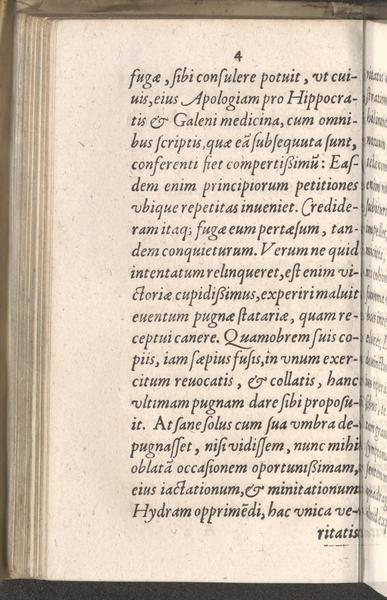 4
fugæ, sibi consulere potuit, vt cui-
uis, eius Apologiam pro Hippocra-
tis & Galeni medicina, cum omni-
bus scriptis, quæ eā subsequuta sunt,
conferenti fiet compertißimū: Eas-
dem enim principiorum petitiones
vbique repetitas inueniet. Credide-
ram itaq; fugæ eum pertæsum, tan-
dem conquieturum. Verum ne quid
intentatum relinqueret, est enim vi-
ctoriæ cupidißimus, experiri maluit
euentum pugnæ statariæ, quam re-
ceptui canere. Quamobrem suis co-
piis, iam sæpius fusis, in vnum exer-
citum reuocatis, & collatis, hanc
vltimam pugnam dare sibi proposu-
it. At sane solus cum sua vmbra de-
pugnasset, nisi vidissem, nunc mihi
oblatā occasionem oportunißimam,
eius iactationum, & minitationum
Hydram opprimēdi, hac vnica ve-
ritatis